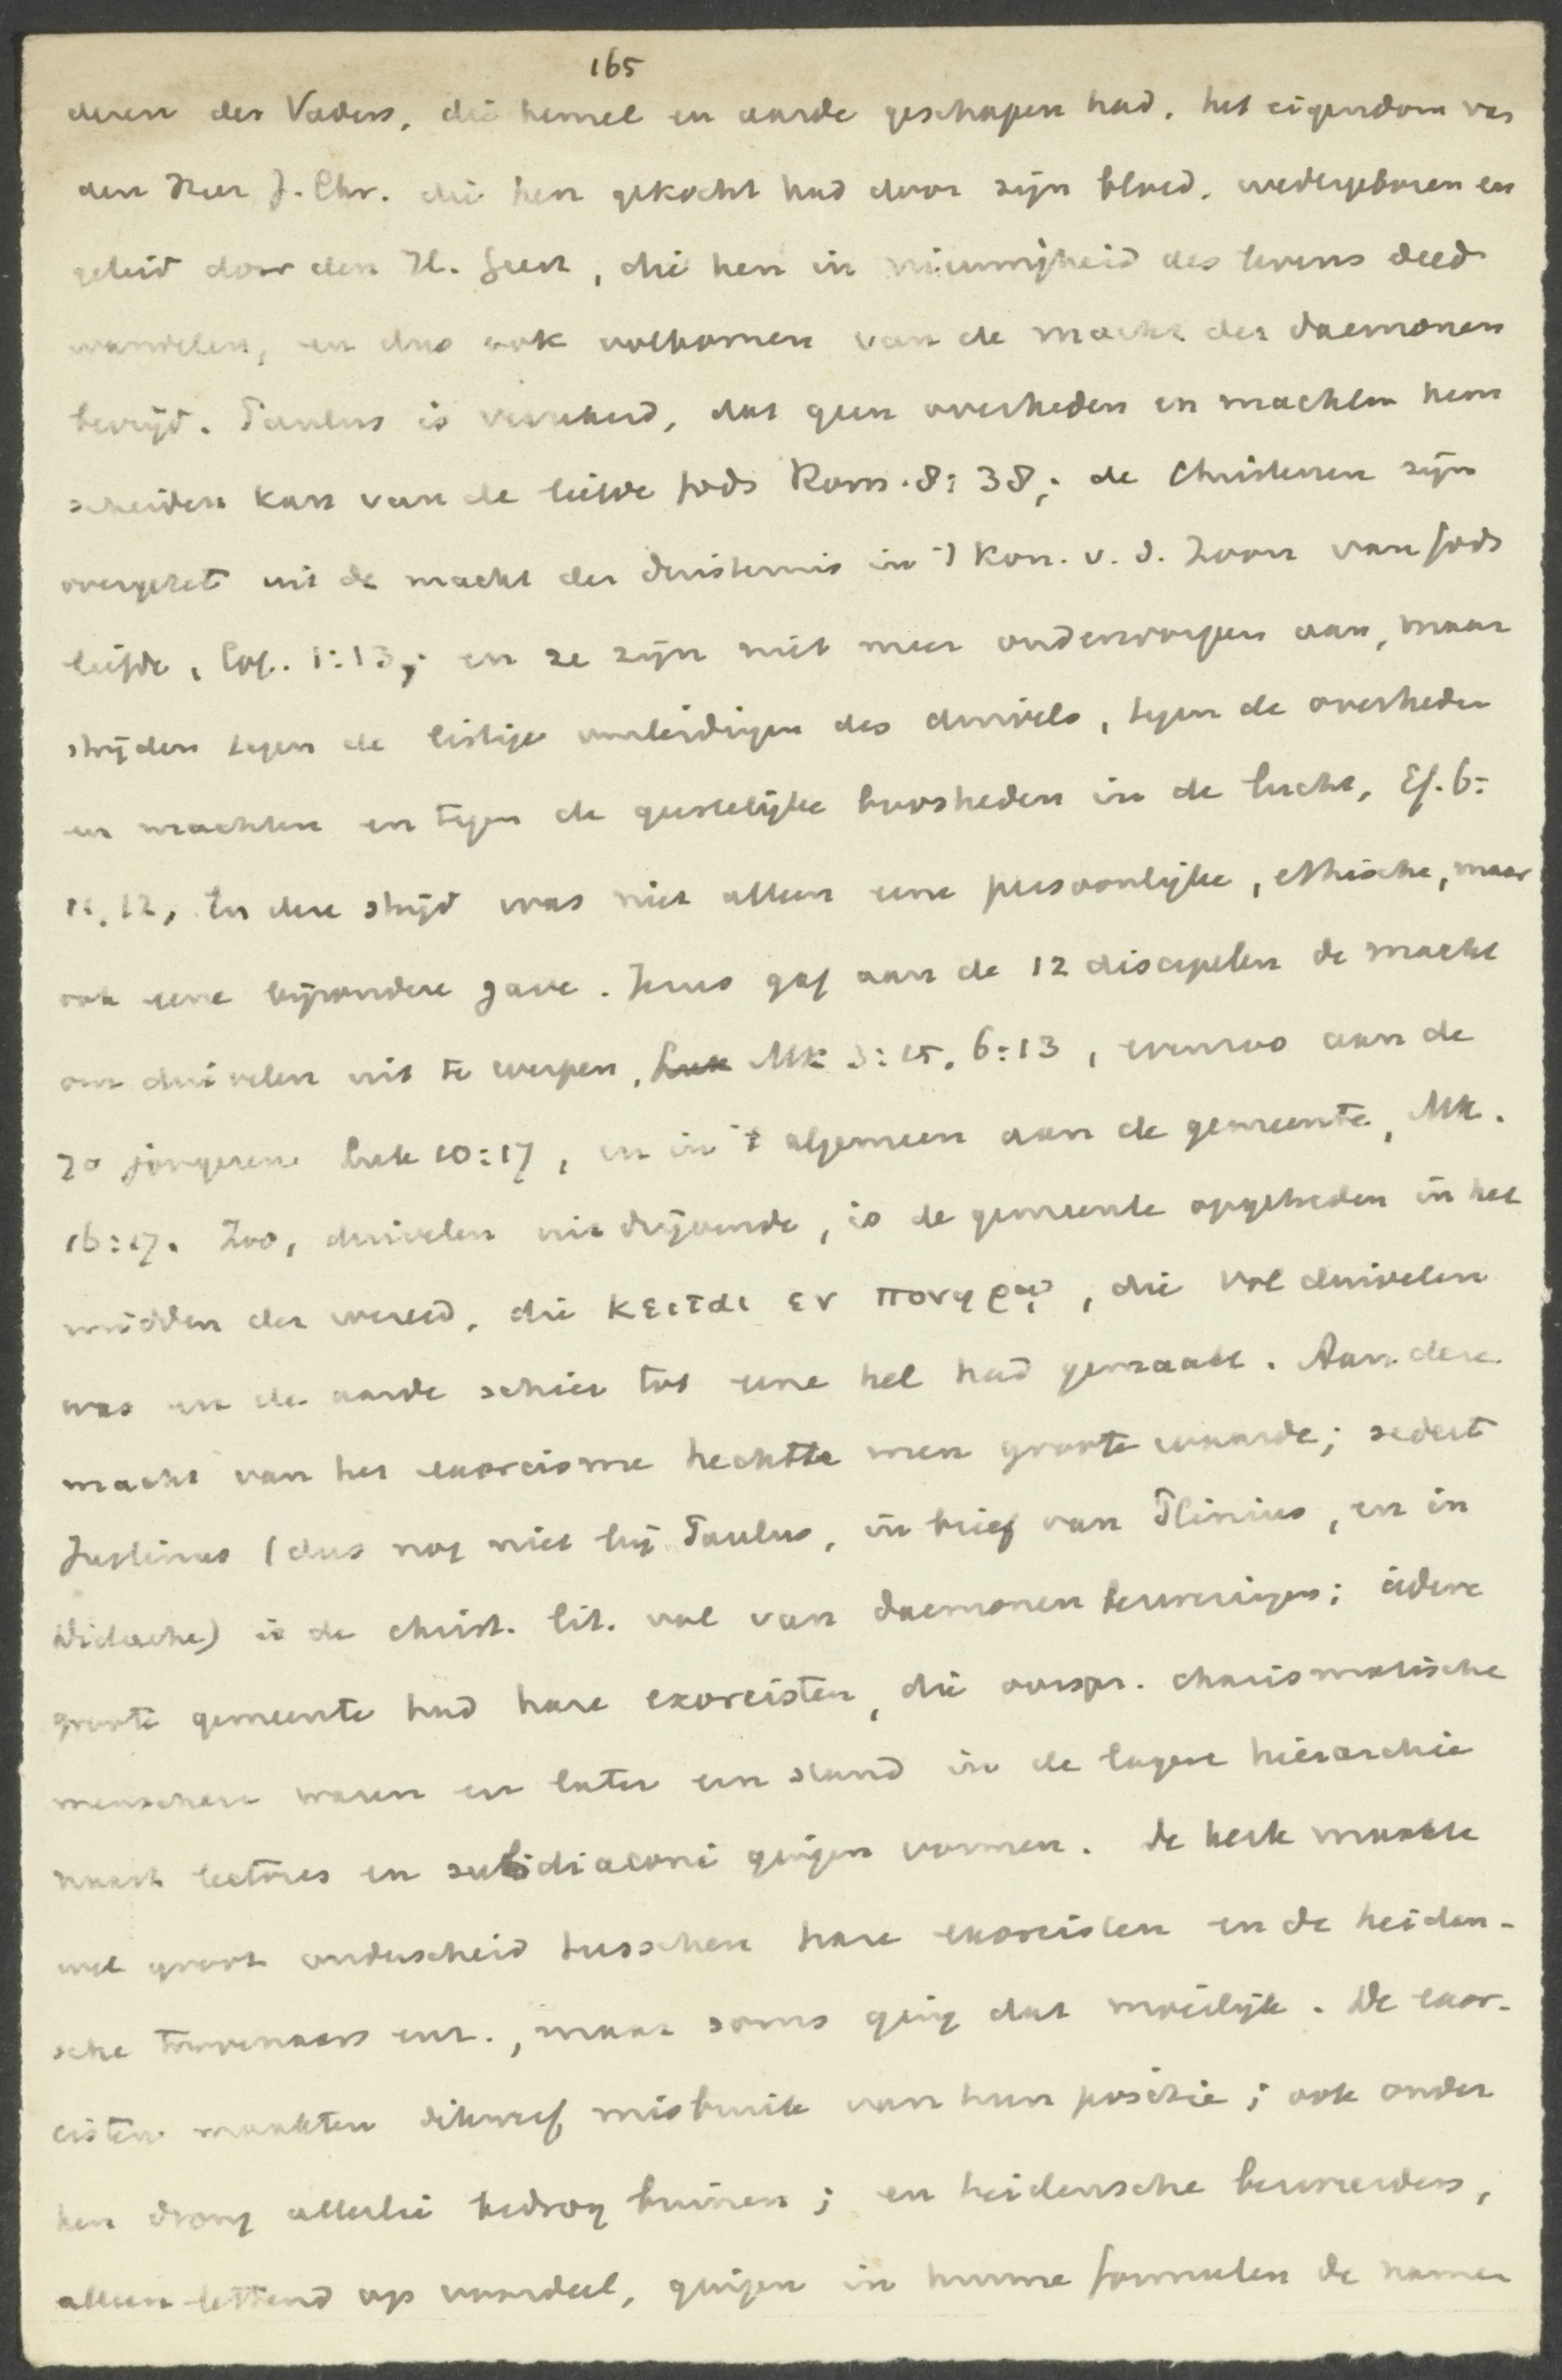 165
deren des Vaders, die hemel en aarde geschapen had, het eigendom van
den Heer J. Chr. die hen gekocht had door zijn bloed, wedergeboren en
geleid door den H. Geest, die hen in nieuwigheid des levens deed
wandelen, en dus ook volkomen van de macht der daemonen
bevrijd. Paulus is verzekerd, dat geen overheden en machten hem
scheiden kan van de liefde Gods Rom. 8:38; de Christenen zijn
overgezet uit de macht der duisternis in 't Kon. v. d. Zoon van Gods
liefde, Col. 1:13; en ze zijn niet meer onderworpen aan, maar
strijden tegen de listige verleidingen des duivels, tegen de overheden
en machten en tegen de geestelijke boosheden in de lucht, Ef. 6:
11, 12. In deze strijd was niet alleen eene persoonlijke, ethische, maar
ook eene bijzondere gave. Jezus gaf aan de 12 discipelen de macht
om duivelen uit te werpen, Luk Mk 3:15, 6:13, evenzoo aan de
70 jongeren Luk 10:17, en in 't algemeen aan de gemeente, Mk.
16:17. Zoo, duivelen uitdrijvende, is de gemeente opgetreden in het
midden der wereld, die κειται εν πονηρῳ, die vol duivelen
was en de aarde schier tot eene hel had gemaakt. Aan deze
macht van het exorcisme hechtte men groote waarde; sedert
Justinus (dus nog niet bij Paulus, in brief van Plinius, en in
Didache) is de christ. lit. vol van daemonen bezweringen; iedere
groote gemeente had hare exorcisten, die oorspr. charismatische
menschen waren en later een stand in de lagere hierarchie
naast lectores en subdiaconi gingen vormen. De kerk maakte
wel groot onderscheid tusschen hare exorcisten en de heiden-
sche toovenaars enz., maar soms ging dat moeilijk. De exor-
cisten maakten dikwerf misbruik van hun positie; ook onder
hen drong allerlei bedrog binnen; en heidensche bezweerders,
alleen lettend op voordeel, gingen in hunne formulen de namen